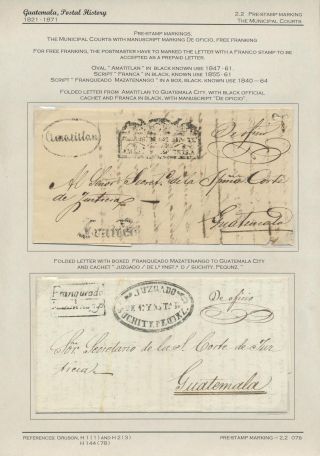 Guatemala, Postal History
1821-1871
2.2 Pre-stamp Markings
The Municipal Courts
Pre-stamp markings.
The Municipal Courts with manuscript marking De oficio, free franking
For free franking, the postmaster have to marked the letter with a Franco stamp to be
accepted as a prepaid letter.
Oval "Amatitlan" in black known use 1847-61.
Script "Franca" in black known use 1855-61
Script "Franqueado Mazatenango" in a box, black known use 1840-64
Folded letter from Amatitlan to Guatemala City, with black official
cachet and Franca in black, with manuscript "De oficio".
Amatitlan
De oficio
Al Señor Secret.º de la Corte
de Justicia
Guatemala
Franca
Folded letter with boxed Franqueado Mazatenango to Guatemala City
and cachet "Juzgado / de 1ª Ynstª D / Suchity. Pequnz."
Franqueado
JUZGADO
De oficio
Sõr. Secretario de la S. Corte de Jus
ticia
Guatemala
References: Gruson, H 1 (1) and H 2 (3)
H 144 (78)
Pre-stamp Marking - 2.2 076